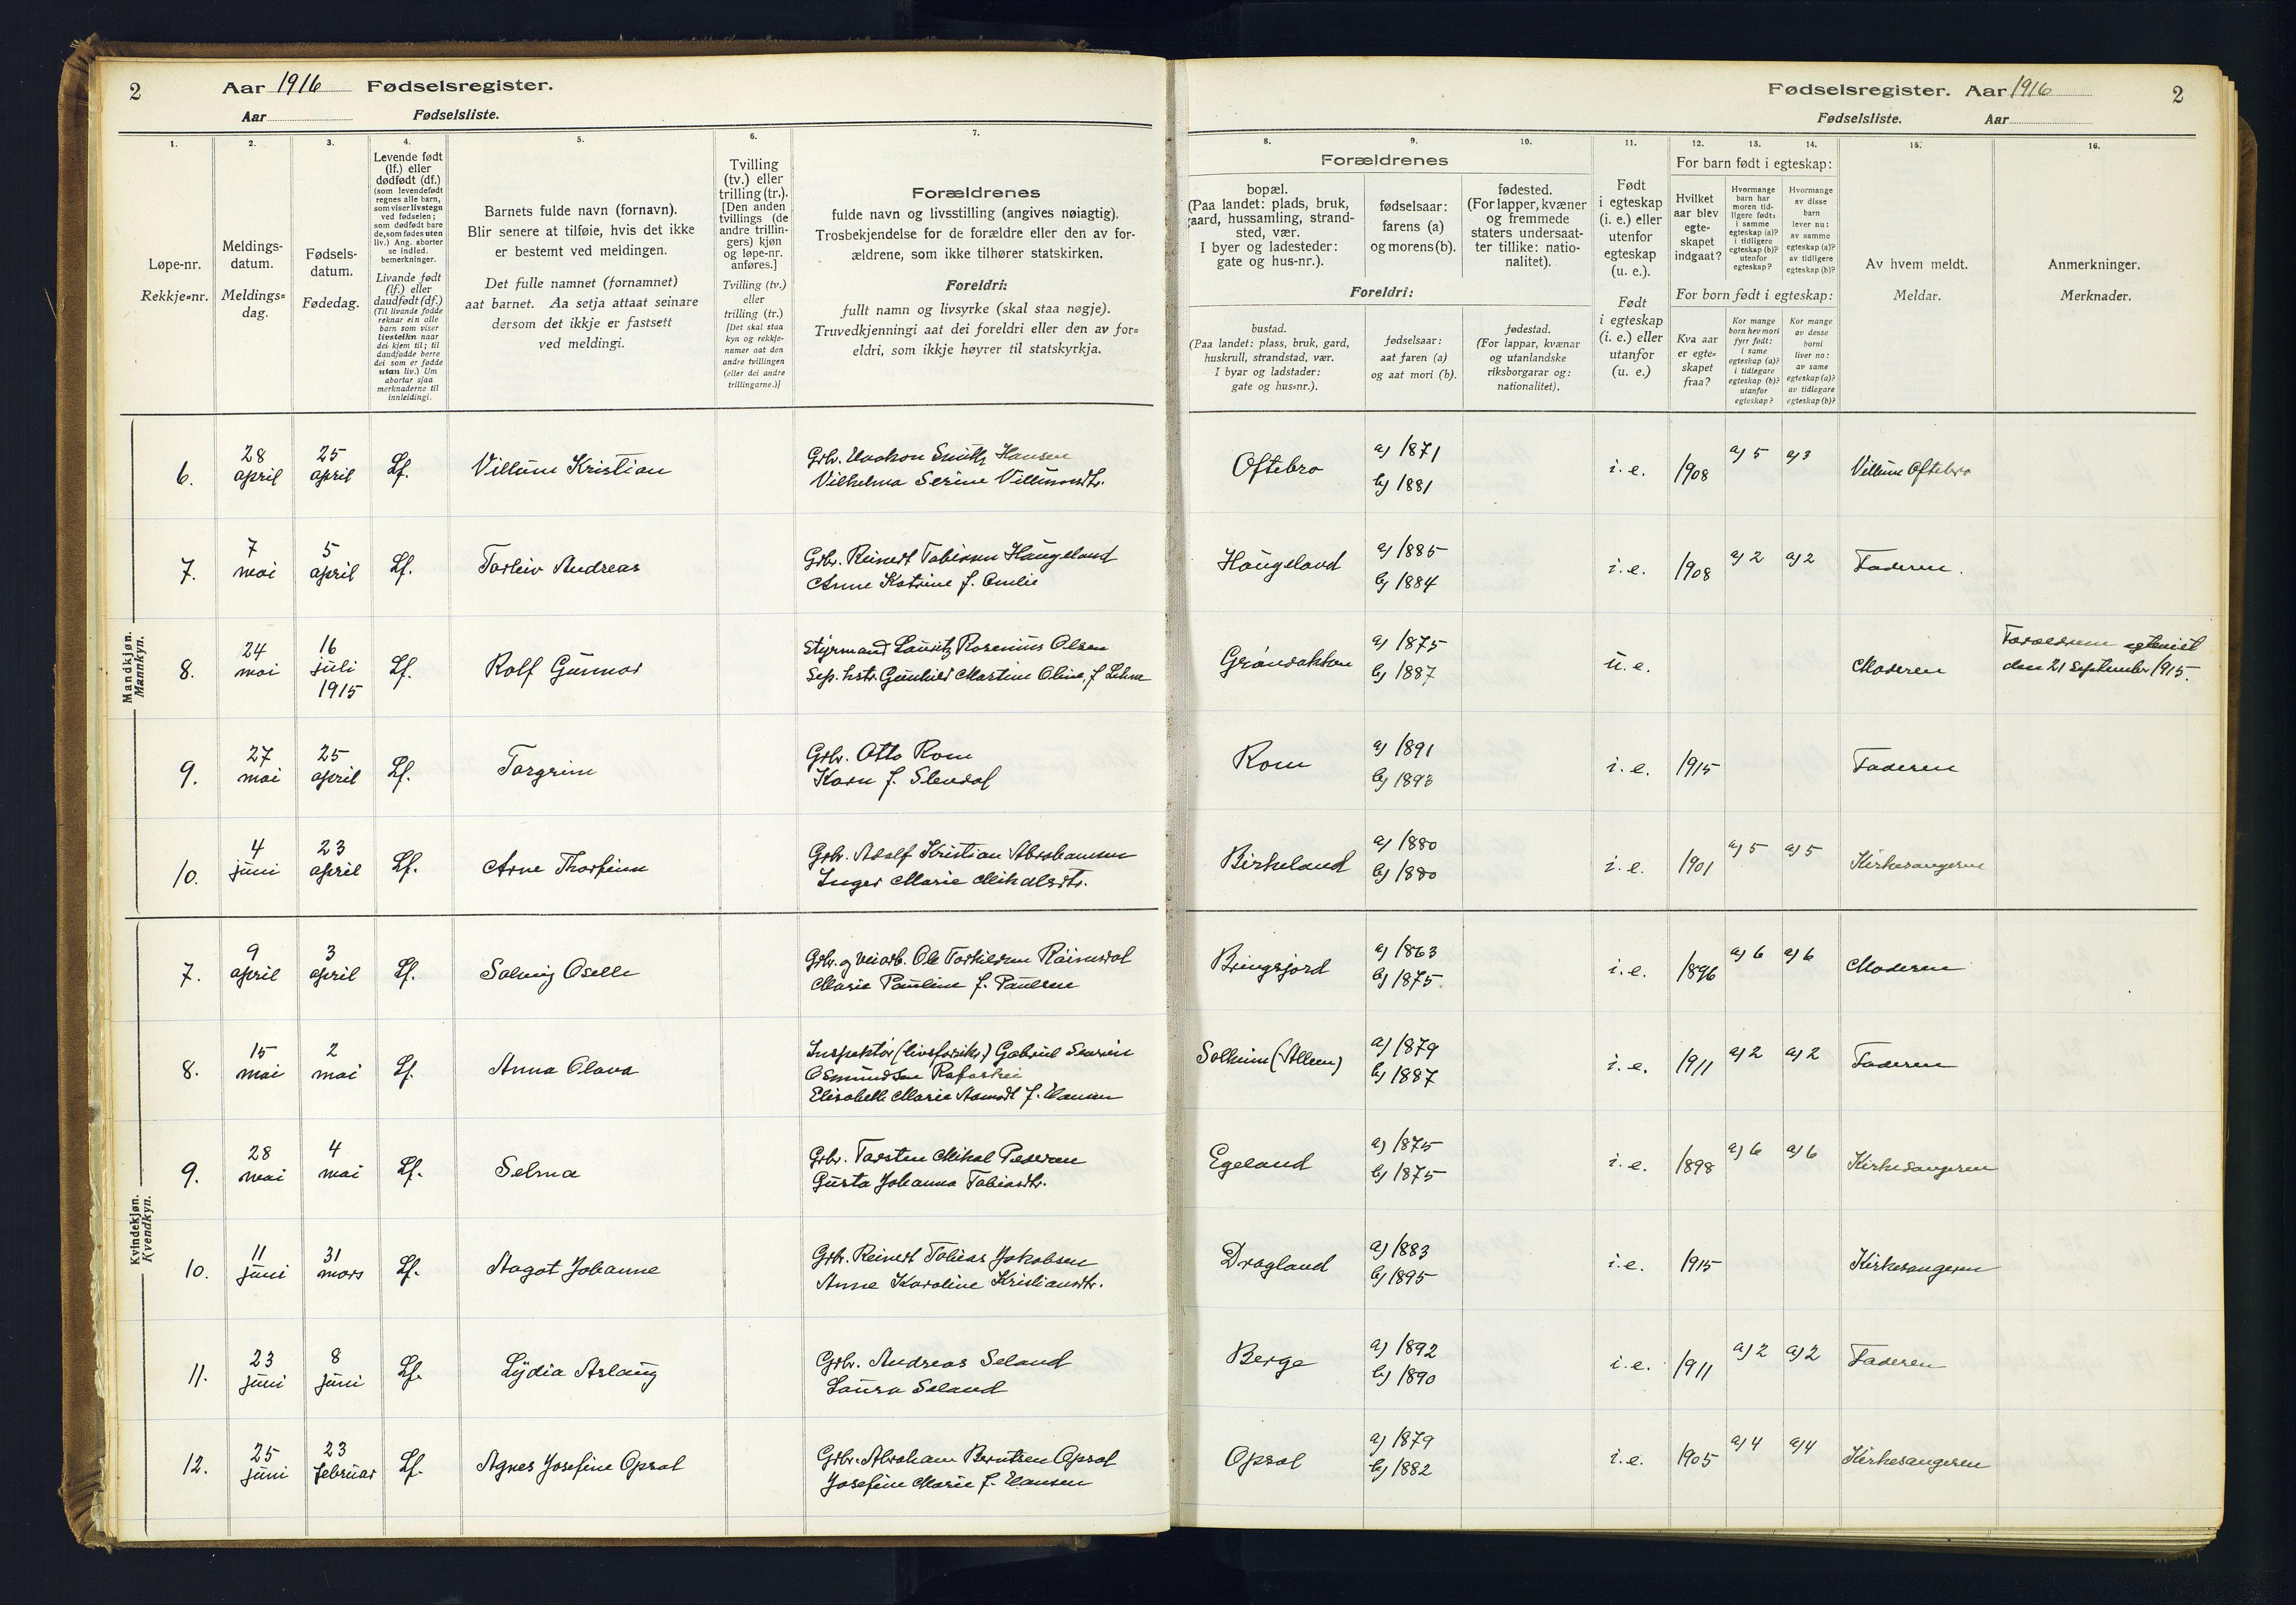 2
Aar 1916 Fødselsregister.
Aar Fødselsliste.
Fødselsregister. Aar 1916
2
Fødselsliste. Aar
1.
Løpe-nr.
Rekkje-nr.
2.
Meldings-
datum.
Meldings-
dag.
3.
Fødsels-
datum.
Fødedag.
4.
Levende født
(lf.) eller
dødfødt (df.)
(som levendefødt
regnes alle barn,
som viser livstegn
ved fødselen;
som dødfødt bare
de, som fødes uten
liv.) Ang. aborter
se indled.
bemerkninger.
Livande født
(lf.) eller
daudfødt (df.)
(Til livande fødde
reknar ein alle
barn som viser
livsteikn naar
dei kjem til; til
daudfødde berre
dei som er fødde
utan liv.) Um
abortar sjaa
merknaderne til
innleidingi.
5.
Barnets fulde navn (fornavn).
Blir senere at tilføie, hvis det ikke
er bestemt ved meldingen.
Det fulle namnet (fornamnet)
aat barnet. Aa setja attaat seinare
dersom det ikkje er fastsett
ved meldingi.
6.
Tvilling
(tv.) eller
trilling (tr.).
[Den anden
tvillings (de
andre trillin-
gers) kjøn
og løpe-nr.
anføres.]
Tvilling (tv.)
eller
trilling (tr.)
[Det skal staa
kyn og rekkje-
numer aat den
andre tvillingen
(eller dei andre
trillingarne.)]
7.
Forældrenes
fulde navn og livsstilling (angives nøiagtig).
Trosbekjendelse for de forældre eller den av for-
ældrene, som ikke tilhører statskirken.
Foreldri:
fullt namn og livsyrke (skal staa nøgje).
Truvedkjenningi aat dei foreldri eller den av for-
eldri, som ikkje høyrer til statskyrkja.
8. 9. 10.
Forældrenes
bopæl.
(Paa landet: plads, bruk,
gaard, hussamling, strand-
sted, vær.
I byer og ladesteder:
gate og hus-nr.).
fødselsaar:
farens (a)
og morens (b).
fødested.
(For lapper, kvæner
og fremmede
staters undersaat-
ter tillike: natio-
nalitet).
Foreldri:
bustad.
(Paa landet: plass, bruk, gard,
huskrull, strandstad, vær.
I byar og ladstader:
gate og hus-nr.).
fødselsaar:
aat faren (a)
og aat mori (b).
fødestad.
(For lappar, kvænar
og utanlandske
riksborgarar og:
nationalitet).
11.
Født
i egteskap
(i. e.) eller
utenfor
egteskap
(u. e.).
Født
i egteskap
(i. e.) eller
utanfor
(u. e.)
12. 13. 14.
For barn født i egteskap:
Hvilket
aar blev
egte-
skapet
indgaat?
Hvormange
barn har
moren tid-
ligere født:
i samme
egteskap (a)?
i tidligere
egteskap (b)?
utenfor
egteskap?
Hvormange
av disse
barn
lever nu:
av samme
egteskap (a)?
av tidligere
egteskap (b)?
For born født i egteskap:
Kva aar
er egte-
skapet
fraa?
Kor mange
born hev mori
fyrr født:
i same
egteskap (a)?
i tidlegare
egteskap (b)?
utanfor
egteskap?
Kor mange
av desse
borni
liver no:
av same
egteskap (a)?
av tidlegare
egteskap (b)?
15.
Av hvem meldt.
Meldar.
16.
Anmerkninger.
Merknader.
Mandkjøn.
Mannkyn.
6. 28 april 25 april Lf. Villum Kristian
Grbr. Haakon Smith Hansen
Vilhelma Serine Villumsdtr.
Oftebro a) 1871 b) 1881 i. e. 1908 a) 5 a) 3 Villum Oftebro
7. 7 mai 5 april Lf. Torleiv Andreas
Grbr. Reinert Tobiasen Haugeland
Anne Katrine f. Omlie
Haugeland a) 1885 b) 1884 i. e. 1908 a) 2 a) 2 Faderen.
8. 24 mai 16 juli 1915 Lf. Rolf Gunnar
Styrmand Lauritz Rosenius Olsen
Sep. hstr. Gunhild Martine Oline, f. Lehne
a) 1875 b) 1887 u. e. Moderen
Foreldrene egteviet
den 21 september 1915.
9. 27 mai 25 april Lf. Torgrim
Grbr. Otto Rom
Karn f. Slevdal
Rom a) 1891 b) 1893 i. e. 1915 Faderen
10. 4 juni 23 april Lf. Arne Thorfinn
Grbr. Adolf Kristian Abrahamsen
Inger Marie Mikalsdtr.
Birkeland a) 1880 b) 1880 i. e. 1901 a) 5 a) 5 Kirkesangeren
Kvindekjøn.
Kvendkyn.
7. 9 april 3 april Lf. Solveig Oselle
Grbr. og veiarb. Ole Torkildsen Røimsdal
Marie Pauline f. Paulsen
Bringsjord a) 1863 b) 1875. i. e. 1896 a) 6 a) 6 Moderen
8. 15 mai 2 mai Lf. Anna Olava
Inspektør (livsforsikr.) Gabriel Severin
Osmundsen Rafoshei
Elisabeth Marie Aamodt f. Hansen
Solheim (Alleen) a) 1879 b) 1887 i. e. 1911 a) 2 a) 2 Faderen
9. 28 mai 4 mai Lf. Selma
Grbr. Torsten Mikal Pedersen
Gusta Johanna Tobiasdtr.
Egeland a) 1875 b) 1875 i. e. 1898 a) 6 a) 6 Kirkesangeren
10. 11 juni 31 mars Lf. Aagot Johanne
Grbr. Reinert Tobias Jakobsen
Anne Karoline Kristiansdtr.
Dragland a) 1883 b) 1895 i. e. 1915 Kirkesangeren
11. 23 juni 8 juni Lf. Lydia Aslaug
Grbr. Andreas Seland
Laura Seland
Berge a) 1892 b) 1890 i. e. 1911 a) 2 a) 2 Faderen
12. 25 juni 23 februar Lf. Agnes Josefine Opsal
Grbr. Abraham Berntsen Opsal
Josefine Marie f. Hansen
Opsal a) 1879 b) 1882 i. e. 1905 a) 4 a) 4 Kirkesangeren